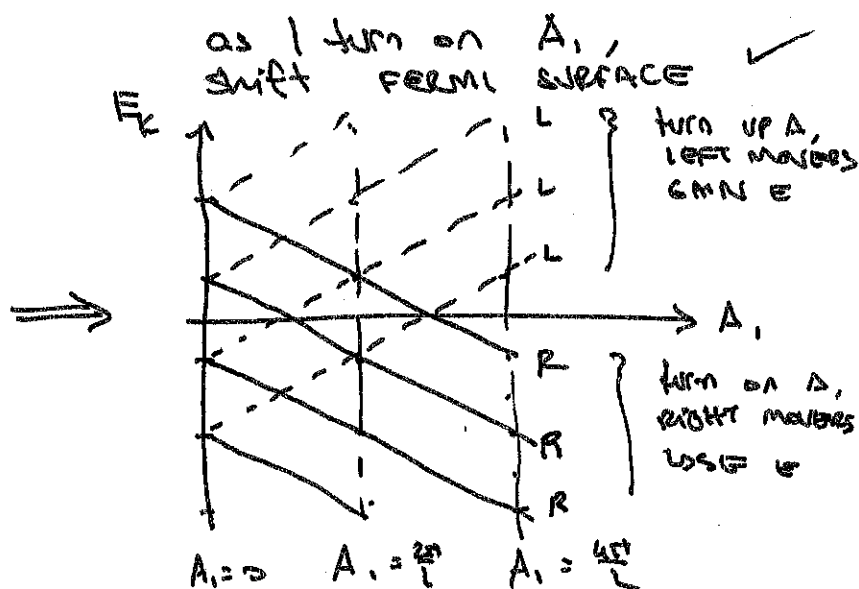 as I turn on A₁,
shift FERMI SURFACE ✓
E_k
L
L
L
turn up A₁
LEFT MOVERS
GAIN E
⇒
A₁
R
R
R
turn on A₁
RIGHT MOVERS
LOSE E
A₁ = 0 A₁ = 2π/L A₁ = 4π/L